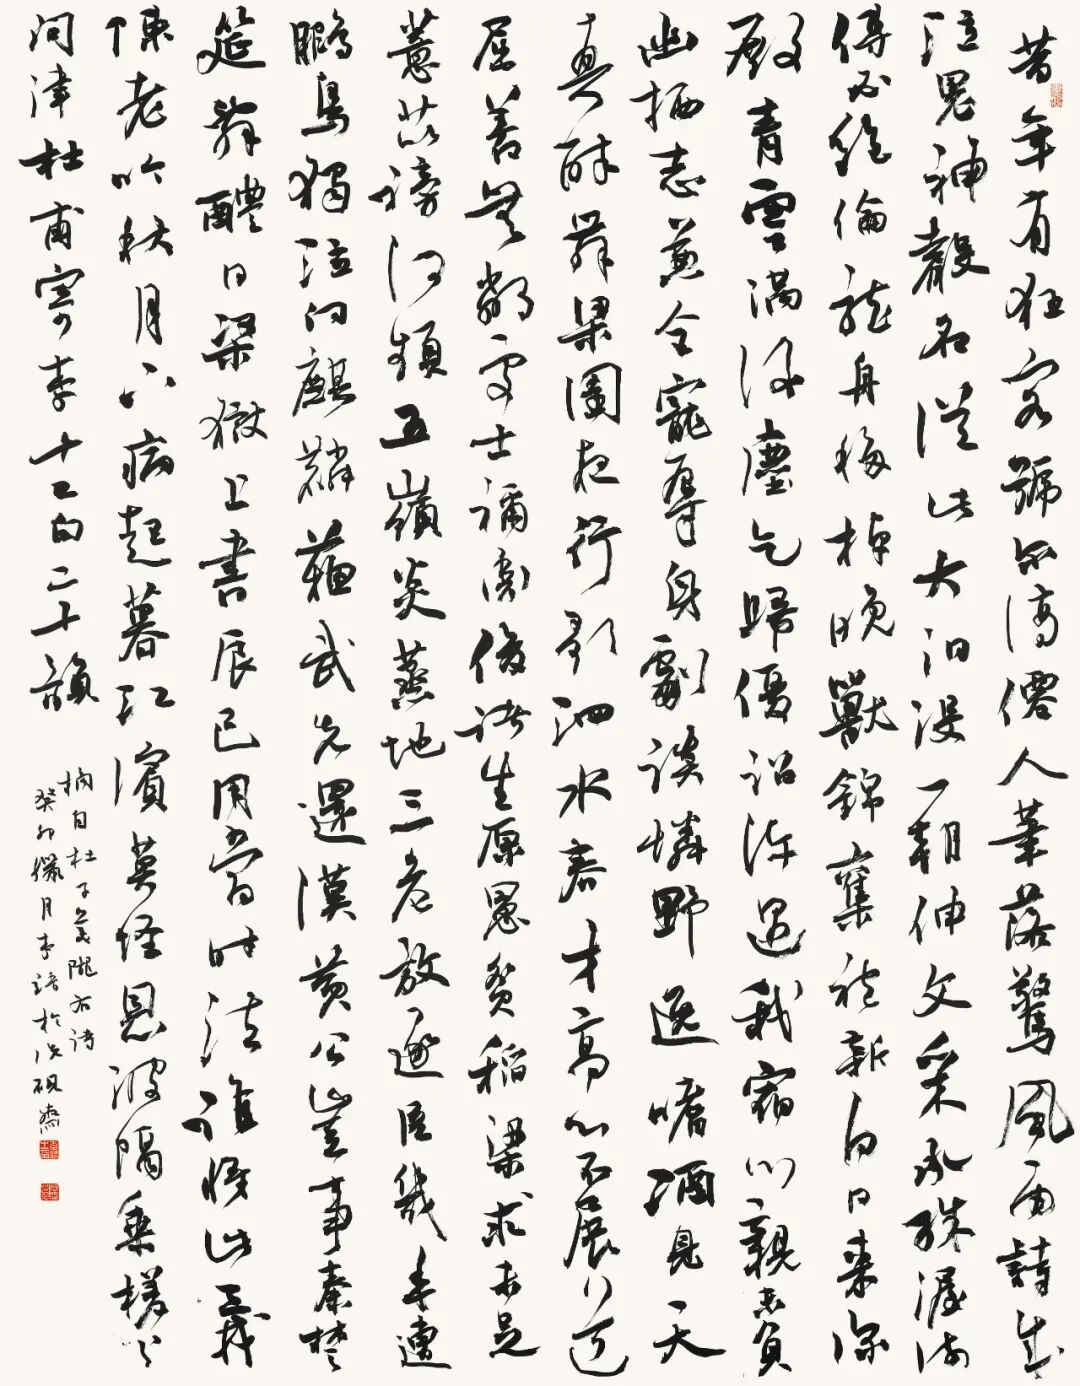 昔年有狂客號尔謫僊人筆落驚風雨詩成
泣鬼神聲名從此大汩沒一朝伸文采承殊渥流
傳必絕倫龍舟移棹晚獸錦奪袍新白日來深
殿青雲滿後塵乞歸優詔許遇我宿心親未負
幽栖志兼全寵辱身劇談憐野逸嗜酒見天
真醉舞梁園夜行歌泗水春才高心不展道
屈善無鄰處士禰衡俊諸生原憲貧稻粱求未足
薏苡謗何頻五嶺炎蒸地三危放逐臣幾年遭
鵩鳥獨泣向麒麟蘇武先還漢黃公豈事秦楚
筵辭醴日梁獄上書辰已用當時法誰將此義
陳老吟秋月下病起暮江濱莫怪恩波隔乘槎與
問津杜甫寄李十二白二十韻
摘自杜子美隴右詩
癸卯臘月李於洗硯齋